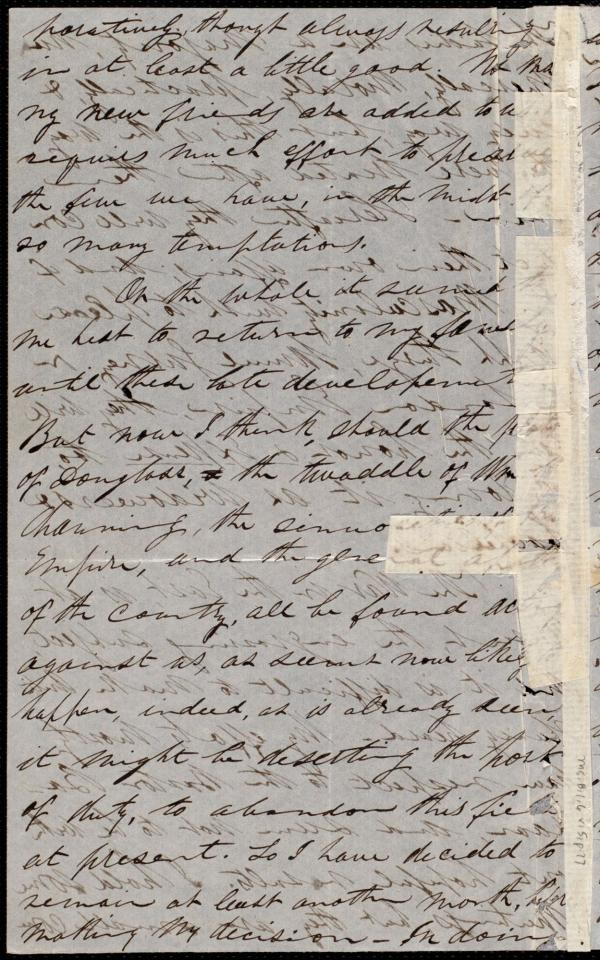 paratively, though always resulting
in at least a little good. No ma
ny new friends are added to us
requires much effort to preser
the few we have, in the midst
so many temptations.
On the whole it seemed
me best to return to my
until these late developement
But now I think, should the
of Douglass, the twaddle of Wm
Channing, the
Empire, and the gene
of the country, all be found
against us, as seems now likely
happen, indeed, as is already seen,
it might be deserting the post
of duty, to abandon this fie
at present. So I have decided to
remain at least another month, before
making my decision - In doin